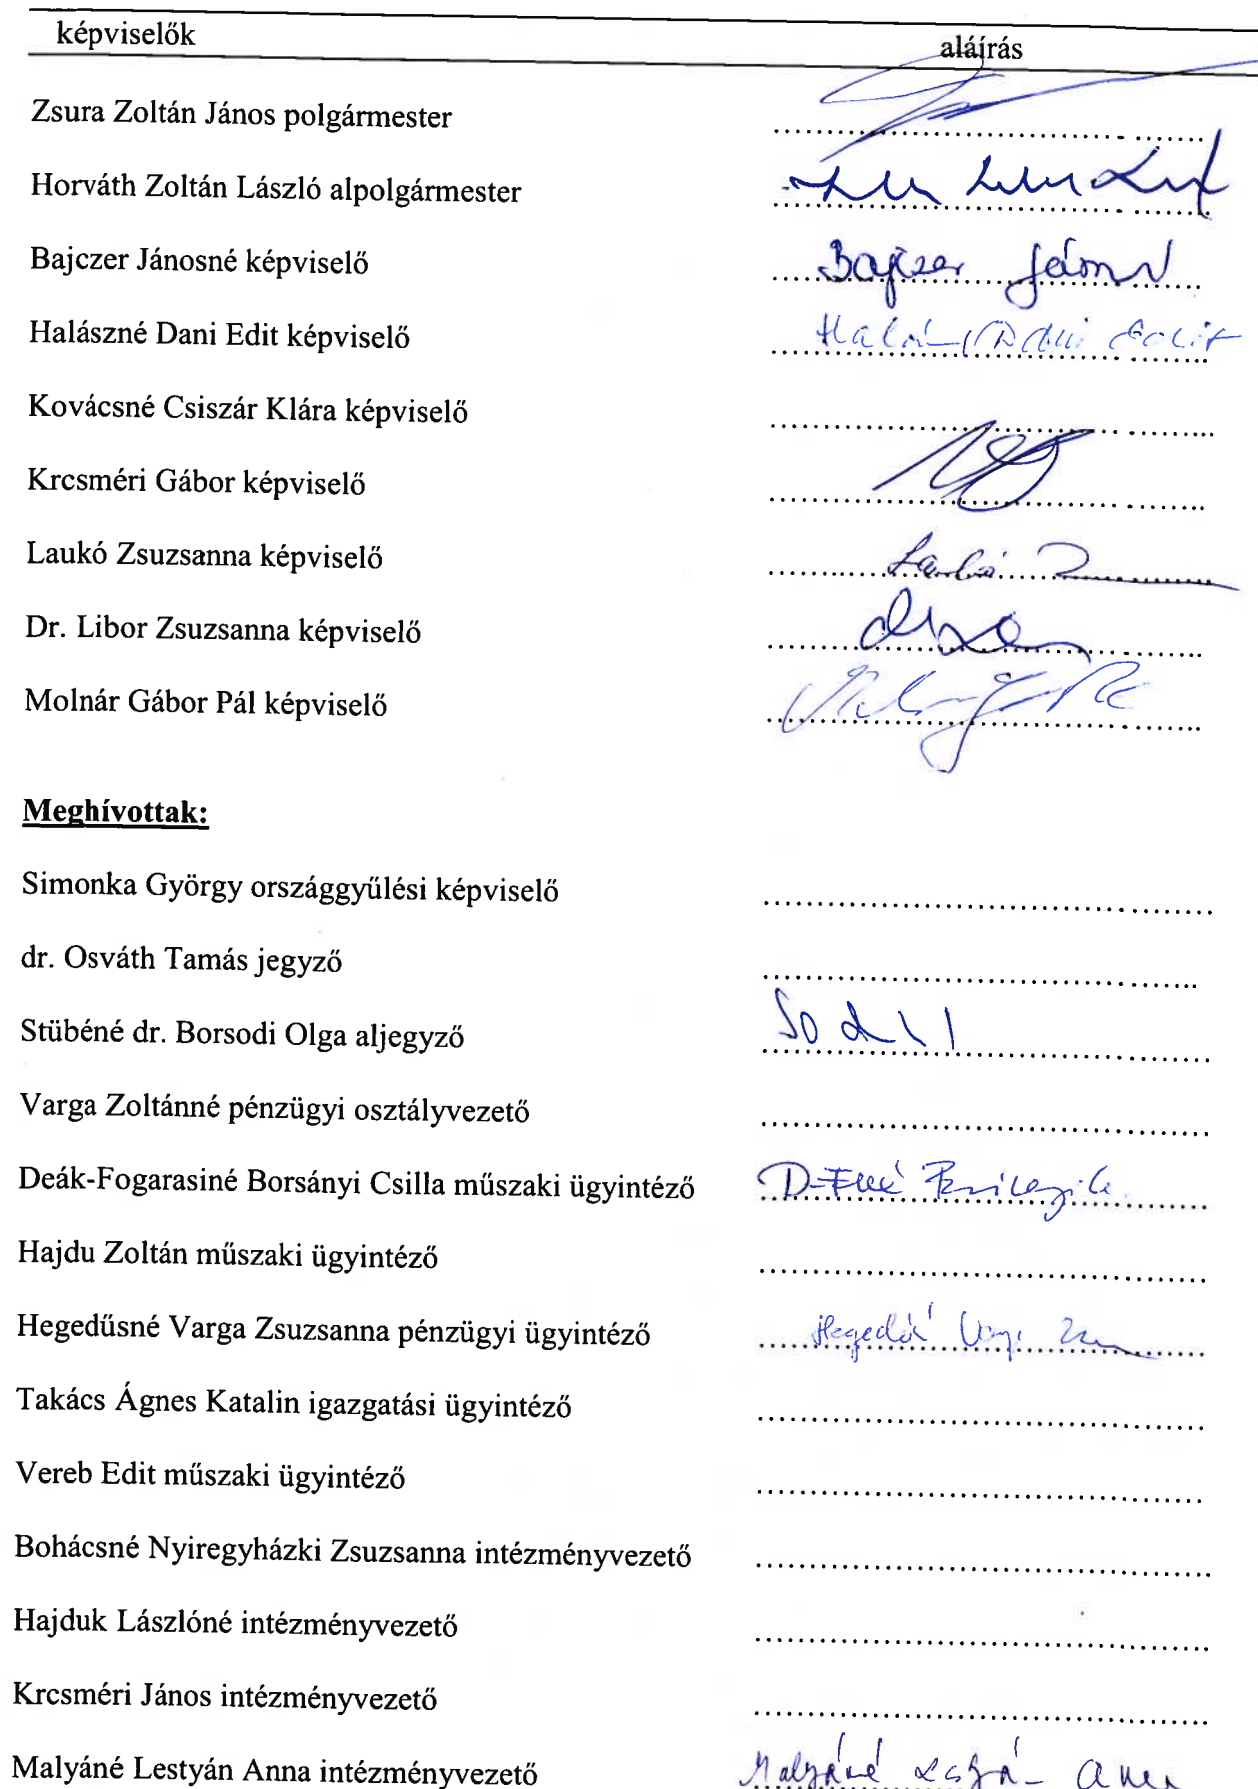 képviselők aláírás
Zsura Zoltán János polgármester ..........
Horváth Zoltán László alpolgármester ..........
Bajczer Jánosné képviselő Bajczer Jánosné
Halászné Dani Edit képviselő Halászné Dani Edit
Kovácsné Csiszár Klára képviselő ..........
Krcsméri Gábor képviselő ..........
Laukó Zsuzsanna képviselő Laukó
Dr. Libor Zsuzsanna képviselő ..........
Molnár Gábor Pál képviselő ..........
Meghívottak:
Simonka György országgyűlési képviselő ..........
dr. Osváth Tamás jegyző ..........
Stübéné dr. Borsodi Olga aljegyző ..........
Varga Zoltánné pénzügyi osztályvezető ..........
Deák-Fogarasiné Borsányi Csilla műszaki ügyintéző ..........
Hajdu Zoltán műszaki ügyintéző ..........
Hegedűsné Varga Zsuzsanna pénzügyi ügyintéző ..........
Takács Ágnes Katalin igazgatási ügyintéző ..........
Vereb Edit műszaki ügyintéző ..........
Bohácsné Nyiregyházki Zsuzsanna intézményvezető ..........
Hajduk Lászlóné intézményvezető ..........
Krcsméri János intézményvezető ..........
Malyáné Lestyán Anna intézményvezető Malyáné Lestyán Anna